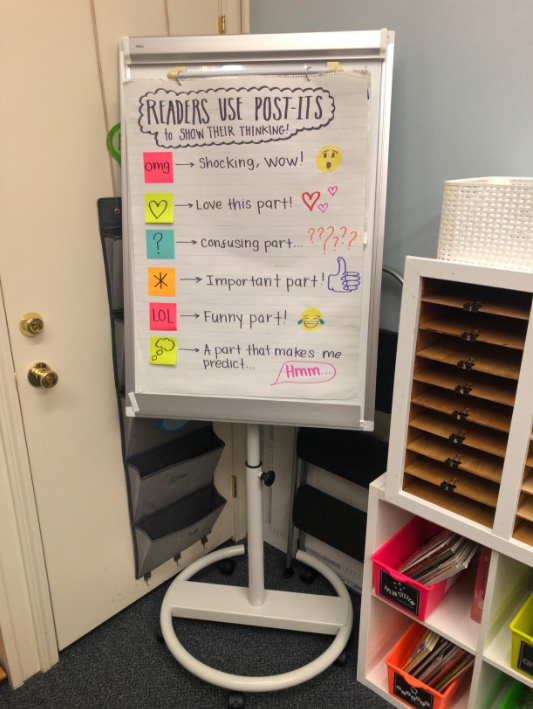 READERS USE POST-ITS
to SHOW THEIR THINKING!
omg → Shocking, Wow!
Love this part!
? → Consusing part... ?????
* → Important part!
LOL → Funny part!
A part that makes me
predict...
Hmm...